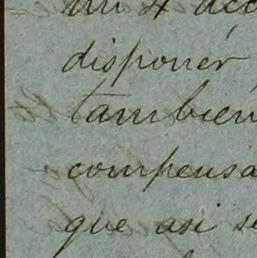 disponer
tambien
compensa
que asi s